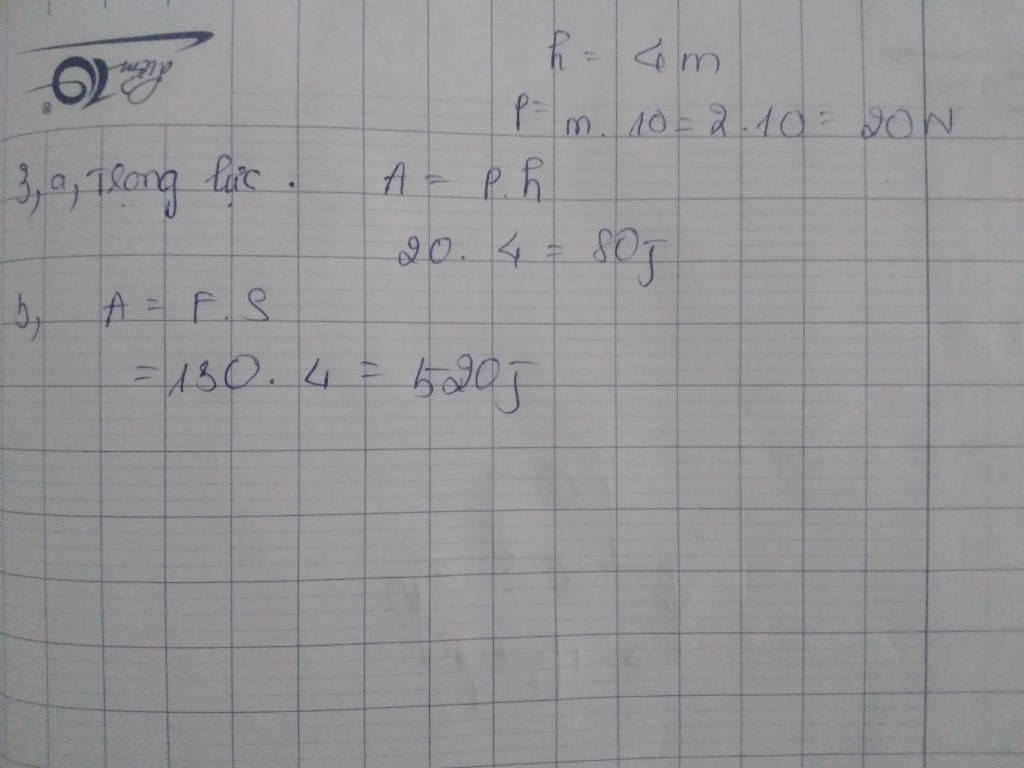 h = 4m
P = m. 10 = 2.10 = 20N
3, a, Trọng lực. A = P.h
20. 4 = 80J
b, A = F.S
= 130. 4 = 520J
điểm 10